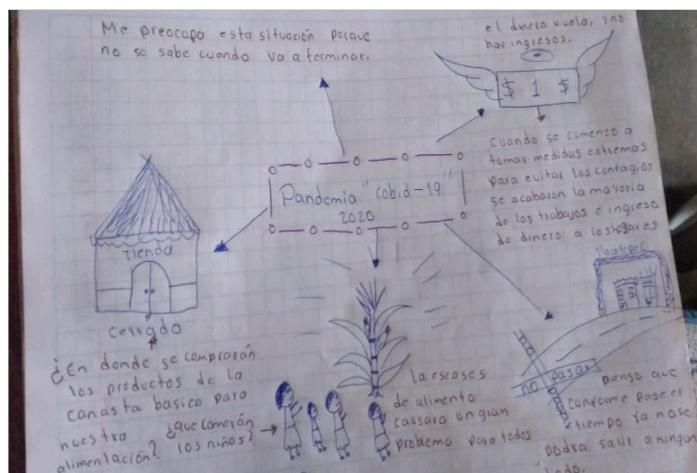 Me preocopa esta situación porque
no se sabe cuando va a terminar.
el dinero vuela, y no
hay ingresos.
$ 1 $
cuando se comenzo a
tomar medidas extremas
para evitar los contagios
se acabaron la mayoria
de los trabajos e ingreso
de dinero a los hogares
Pandemia "cobid-19"
2020
Tienda
cerrado
¿En donde se compraran
los productos de la
canasta basica para
nuestra
alimentación?
¿que comerán
los niños?
La escases
de alimento
causara un gran
problema para todos
Tlacotepec
no
no pasar
pienso que
conforme pase el
tiempo ya no se
podra salir a ningun